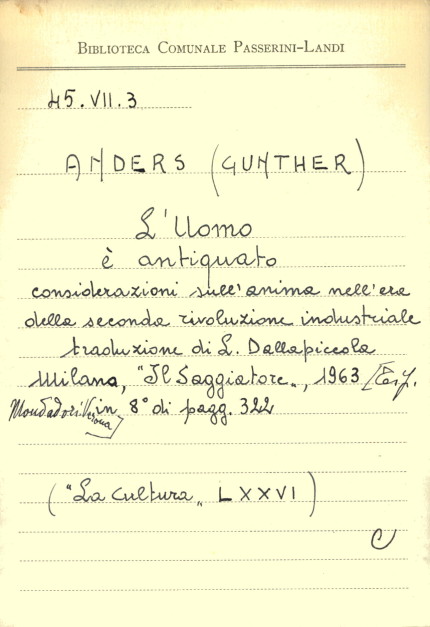 BIBLIOTECA COMUNALE PASSERINI-LANDI
45.VII.3
ANDERS (GUNTHER)
L'Uomo
è antiquato
considerazioni sull'anima nell'era
della seconda rivoluzione industriale
traduzione di L. Dallapiccola
Milana, "Il Saggiatore", 1963 [Tip.
Mondadori Verona] in 8° di pagg. 322
("La Cultura" LXXVI)
C